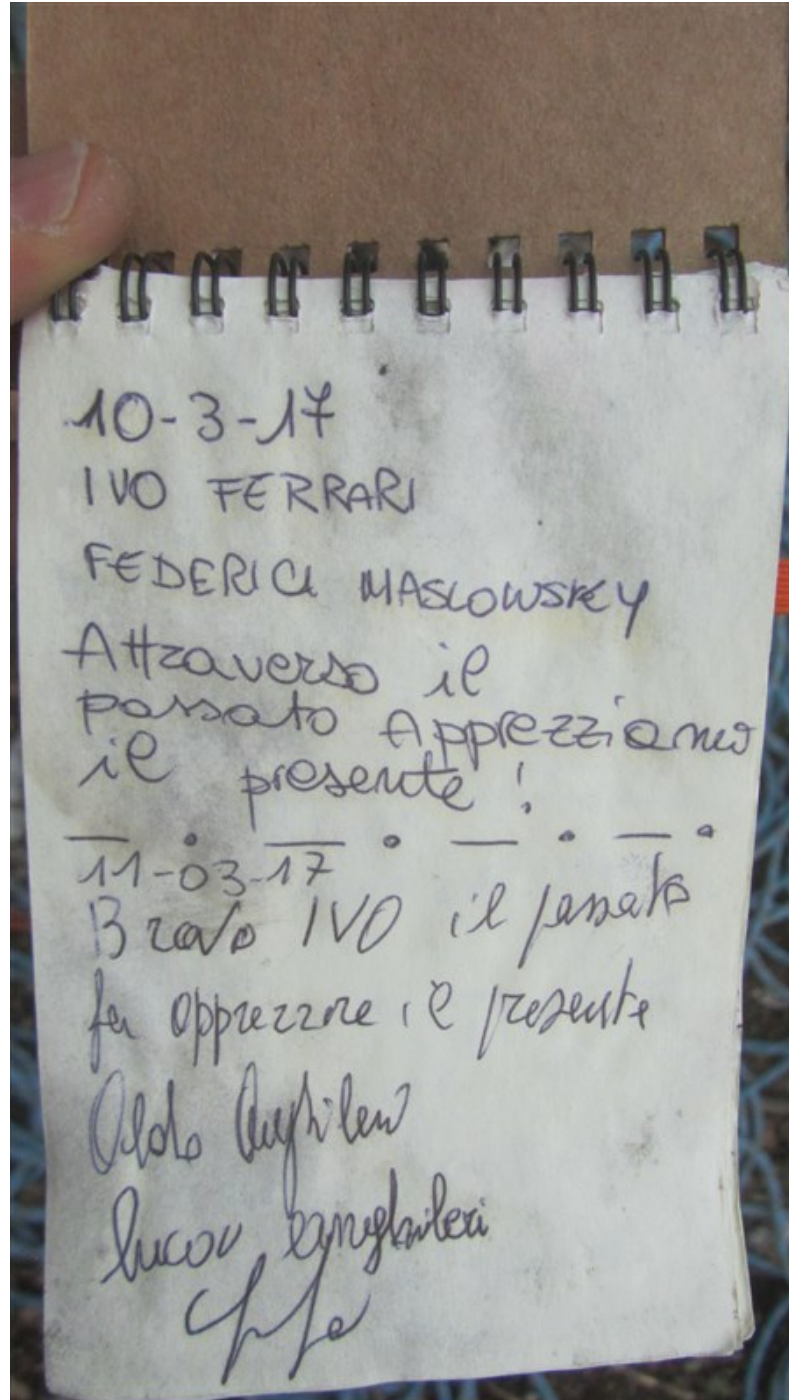 10-3-17
IVO FERRARI
FEDERICA MASLOWSKY
Attraverso il
passato Apprezziamo
il presente!
11-03-17
Bravo IVO il passato
fa apprezzare il presente
Aldo Anghileri
luca anghileri